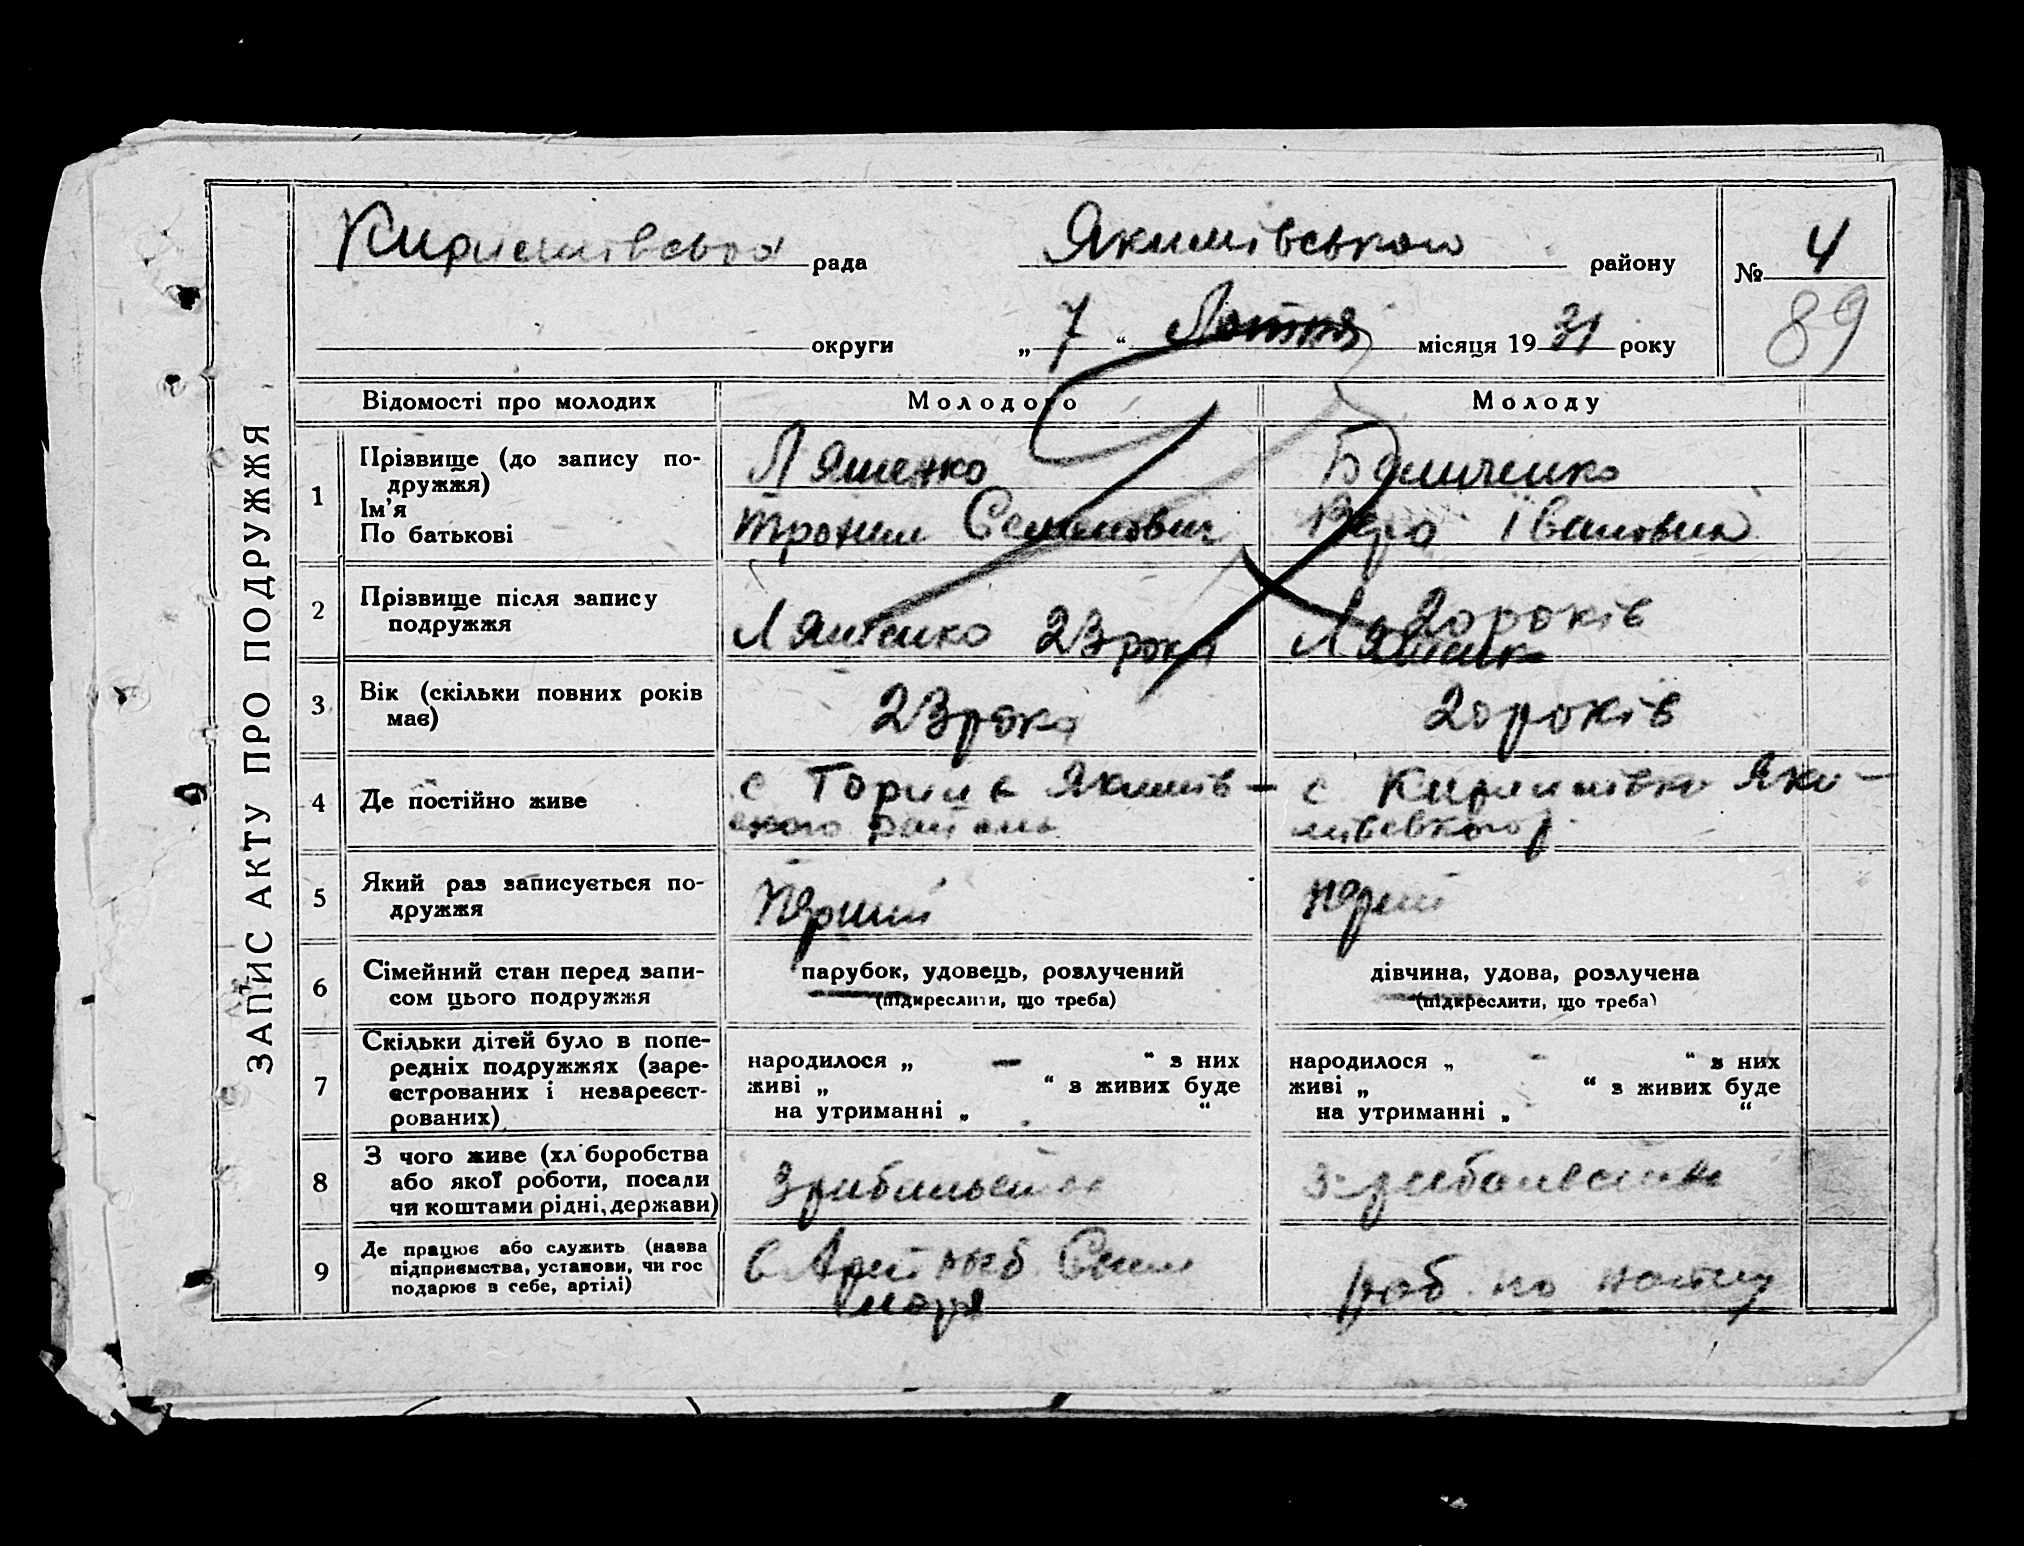 Кирилівська рада Якимівського району № 4
округи „ 7 “ Лютня місяця 19 31 року 89
ЗАПИС АКТУ ПРО ПОДРУЖЖЯ
Відомості про молодих Молодого Молоду
1 Прізвище (до запису по-
дружжя)
Ім'я
По батькові
Ляшенко
Трохим Семенович
Вера Івановна
2 Прізвище після запису
подружжя
Ляшенко 23 рока
20 років
Ляшенко
3 Вік (скільки повних років
має)
23 рока
20 років
4 Де постійно живе
с Якимів-
ского району
с Кирилівка Яки-
мівского р.
5 Який раз записується по-
дружжя
Перший
6 Сімейний стан перед запи-
сом цього подружжя
парубок, удовець, розлучений
(підкреслити, що треба)
дівчина, удова, розлучена
(підкреслити, що треба)
7 Скільки дітей було в попе-
редніх подружжях (заре-
єстрованих і незареєст-
рованих)
народилося „ — “ з них
живі „ “ з живих буде
на утриманні „ “
народилося „ - “ з них
живі „ “ з живих буде
на утриманні „ “
8 З чого живе (хліборобства
або якої роботи, посади
чи коштами рідні, держави)
9 Де працює або служить (назва
підприємства, установи, чи гос
подарює в себе, артілі)
моря
раб. по найму